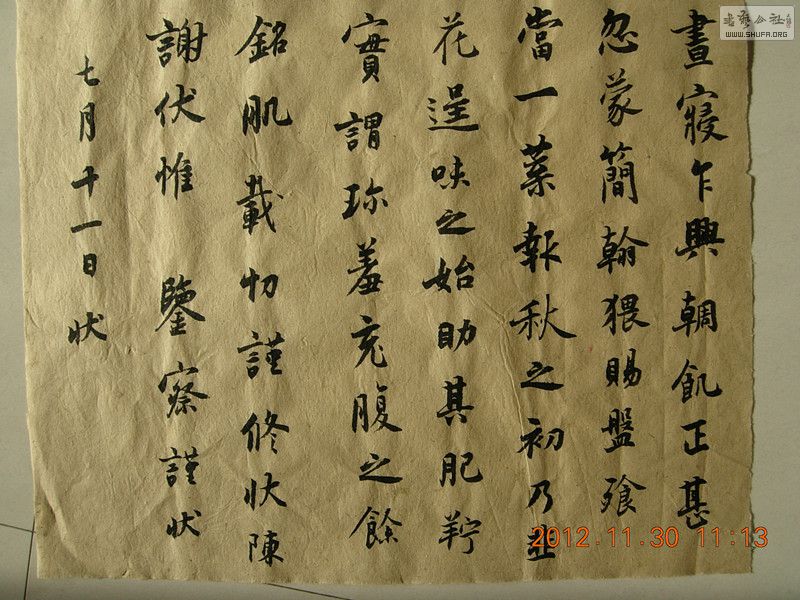 晝寢乍興輖飢正甚
忽蒙簡翰猥賜盤飧
當一葉報秋之初乃韭
花逞味之始助其肥羜
實謂珎羞充腹之餘
銘肌載切謹修狀陳
謝伏惟 鑒察謹狀
七月十一日狀
書藝公社
WWW.SHUFA.ORG
2012.11.30 11:13